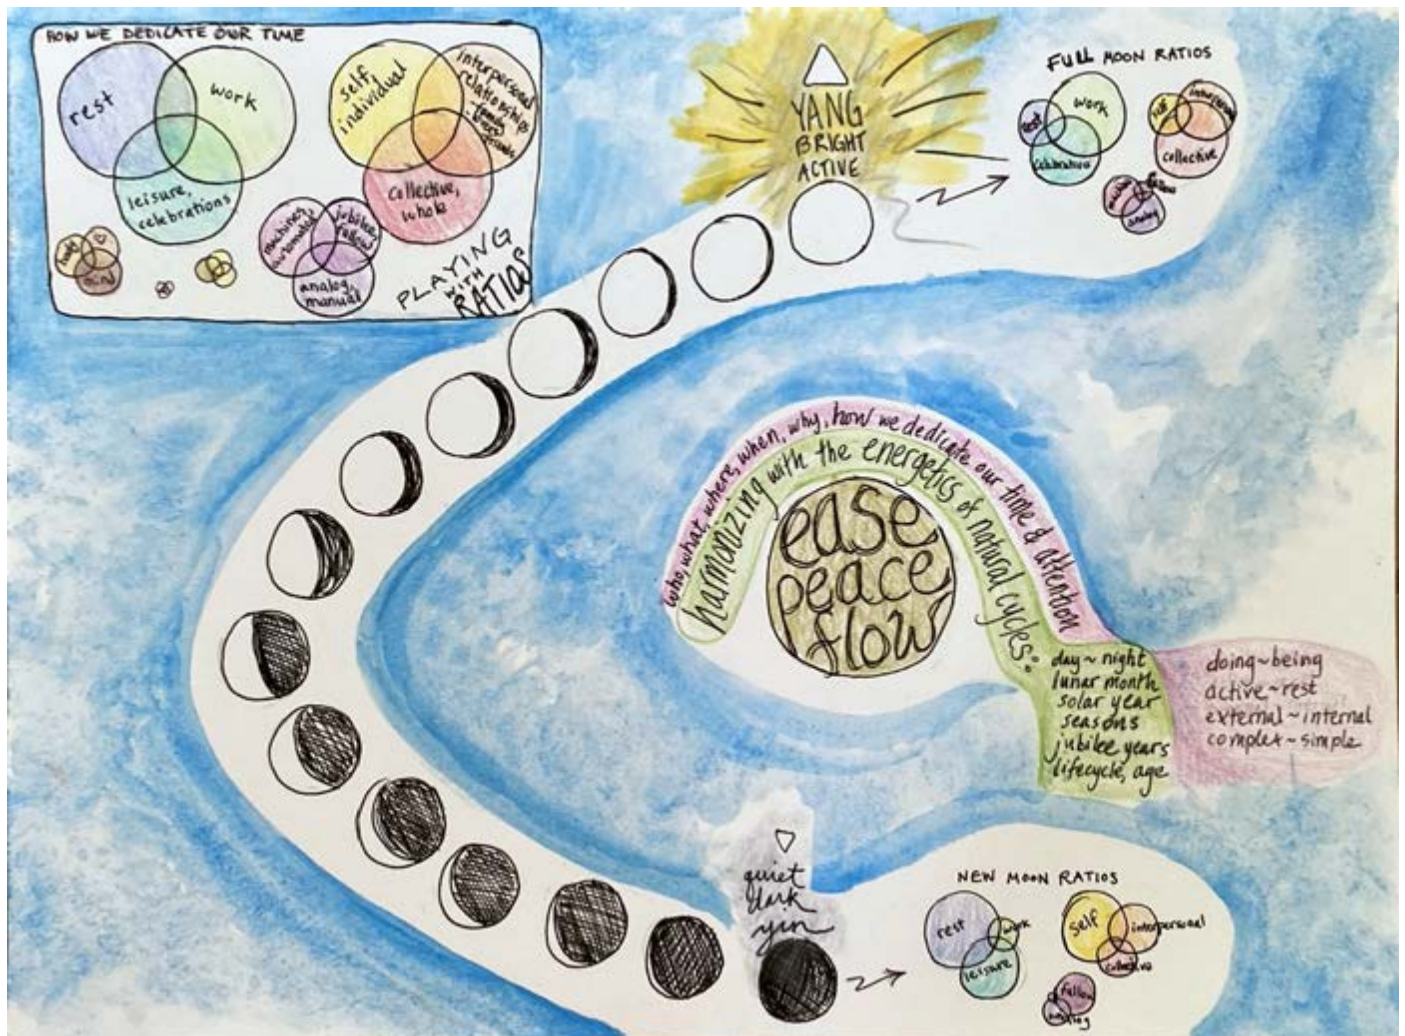 HOW WE DEDICATE OUR TIME
rest
work
leisure,
celebrations
self,
individual
interpersonal
relationships
-family
collective,
whole
machines,
automated
jubilee,
fallow
analog,
manual
mind
PLAYING
WITH
RATIOS
YANG
BRIGHT
ACTIVE
FULL MOON RATIOS
rest
work
celebrations
self
interpersonal
collective
analog
who, what, where, when, why, how we dedicate our time & attention
harmonizing with the energetics of natural cycles:
ease
peace
flow
day ~ night
lunar month
solar year
seasons
jubilee years
lifecycle, age
doing ~ being
active ~ rest
external ~ internal
complex ~ simple
quiet
dark
yin
NEW MOON RATIOS
rest
work
leisure
self
interpersonal
collective
fallow